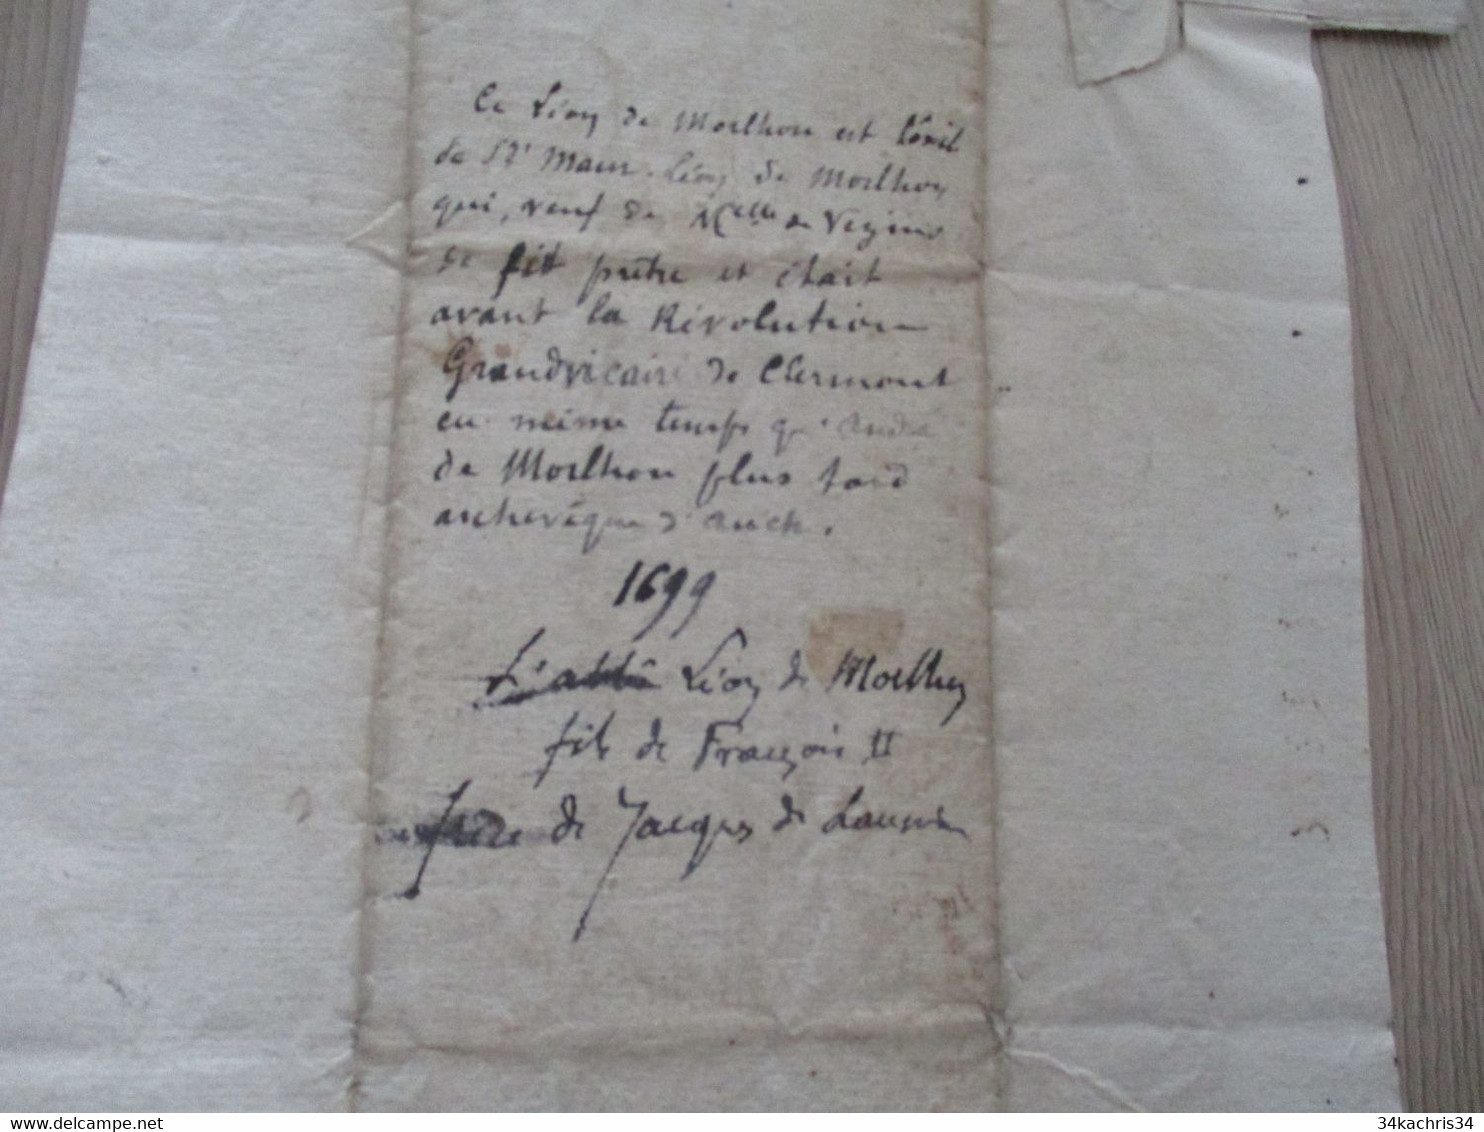 Ce Léon de Morlhon est l'oncle
de St Maur. Léon de Morlhon
qui, veuf de Melle de Vezins
se fit prêtre et était
avant la Révolution
Grandvicaire de Clermont
en même temps qu'André
de Morlhon plus tard
archevêque d'Auch.
1699
L'abbé Léon de Morlhon
fils de François II
frère de Jacques de Laumière
34kachris34